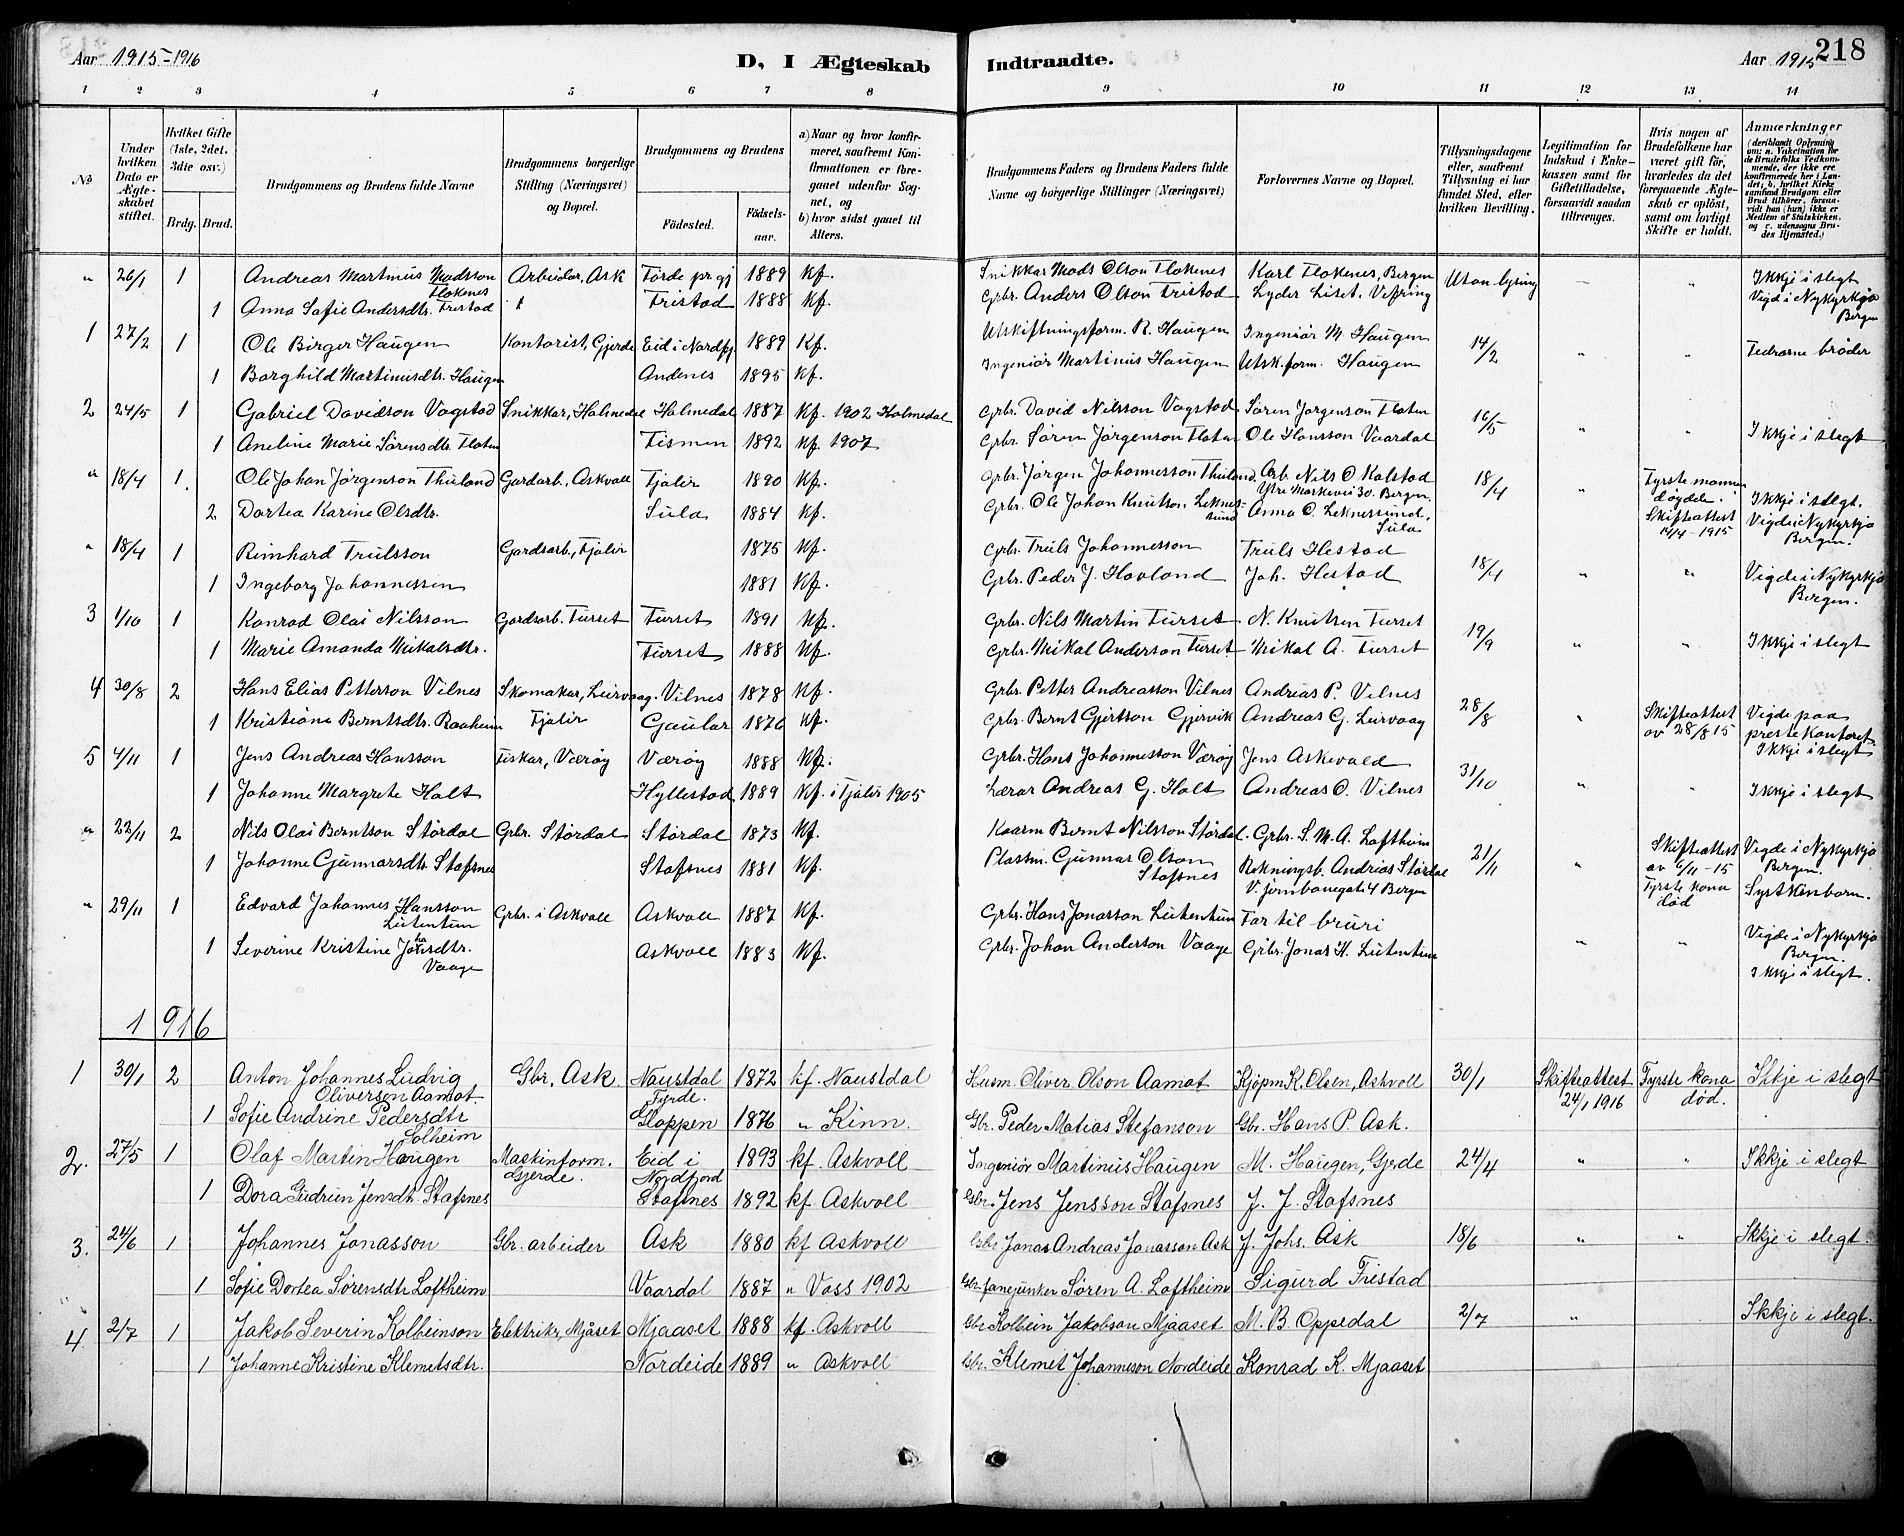 Aar 1915-1916
D, I Ægteskab Indtraadte.
Aar 1915
218
1 2 3 4 5 6 7 8 9 10 11 12 13 14
No
Under hvilken Dato er Ægteskabet stiftet.
Hvilket Gifte (1ste, 2det, 3die osv.)
Brdg. Brud.
Brudgommens og Brudens fulde Navne
Brudgommens borgerlige Stilling (Næringsvei) og Bopæl.
Brudgommens og Brudens
Fødested.
Fødselsaar.
a) Naar og hvor konfirmeret, saafremt Konfirmationen er foregaaet udenfor Sognet, og
b) hvor sidst gaaet til Alters.
Brudgommens Faders og Brudens Faders fulde Navne og borgerlige Stillinger (Næringsvei)
Forlovernes Navne og Bopæl.
Tillysningsdagene eller, saafremt Tillysning ei har fundet Sted, efter hvilken Bevilling.
Legitimation for Indskud i Enkekassen samt for Giftetilladelse, forsaavidt saadan tiltrænges.
Hvis nogen af Brudefolkene har været gift før, hvorledes da det foregaaende Ægteskab er opløst, samt om lovligt Skifte er holdt.
Anmærkninger (deriblandt Oplysning om: a. Vakcination for de Brudefolks Vedkommende, der ikke ere konfirmerede her i Landet; b. hvilket Kirkesamfund Brudgom eller Brud tilhører, forsaavidt han (hun) ikke er Medlem af Statskirken, og c. udensogns Brudes Hjemsted.)
" 26/1 1 Andreas Martinus Madsson Flokenes Arbeidar, Ask Førde pr.gj 1889 Kf. Snikkar Mads Olson Flokenes Karl Flokenes, Bergen Utan lysing - " Ikkje i slegt
1 Anna Sofie Andersdtr. Fristad " Fristad 1888 Kf. Grbr. Anders Olson Fristad Lyder Liset, Vefring Vigd i Nykyrkja Bergen
1 27/2 1 Ole Birger Haugen Kontorist, Gjerde Eid i Nordfj. 1889 Kf. Utskiftningsform. R. Haugen Ingeniør M Haugen 14/2 " " Fedrarne brøder
1 Borghild Martinusdtr. Haugen Andenes 1895 Kf. Ingeniør Martinus Haugen Utsk.form. Haugen
2 24/5 1 Gabriel Davidson Vagstad Snikkar, Holmedal Holmedal 1887 Kf. 1902 Holmedal Grbr. David Nilsson Vagstad Søren Jørgenson Floten 16/5 " "
1 Aneline Marie Sørensdtr. Floten Fismen 1892 Kf. 1907 Grbr. Søren Jørgenson Floten Ole Hansson Vaardal Ikkje i slegt
" 18/4 1 Ole Johan Jørgenson Thuland Gardarb., Askvoll Fjalir 1890 Kf. Grbr. Jørgen Johannesson Thuland Arb. Nils O Kalstad Ytre Markevei 30. Bergen. 18/4 " Fyrste mannen døydde. Ikkje i slegt.
2 Dortea Karine Olsdtr. Sula 1884 Kf. Grbr. Ole Johan Knutson. Leknessund Anna O. Leknessund, Sula Skifteattest 14/4-1915 Vigde i Nykyrkja Bergen.
" 18/4 1 Reinhard Trulsson Gardsarb., Fjalir 1875 Kf. Grbr. Truls Johannesson Truls Hestad 18/4 " "
1 Ingeborg Johannessen 1881 Kf. Grbr. Peder J. Hovland Joh. Hestad Vigde i Nykyrkja Bergen.
3 1/10 1 Konrad Olai Nilsson Gardsarb. Furset Furset 1891 Kf. Grbr. Nils Martin Furset N. Knutsen Furset 19/9 " "
1 Marie Amanda Mikalsdtr. Furset 1888 Kf. Grbr. Mikal Anderson Furset Mikal A. Furset Ikkje i slegt
4 30/8 2 Hans Elias Petterson Vilnes Skomakar, Leirvaag. Vilnes 1878 Kf. Grbr. Petter Andreasson Vilnes Andreas P. Vilnes 28/8 " Skifteattest av 28/8 15 Vigde paa prestekontoret.
1 Kristiane Berntsdtr. Raaheim Fjalir Gaular 1876 Kf. Grbr. Bernt Gjertson Gjervik Andreas G. Leirvaag Ikkje i slegt
5 4/11 1 Jens Andreas Hansson Fiskar, Værøy Værøy 1888 Kf. Grbr. Hans Johannesson Værøy Jens Askevold 31/10 " "
1 Johanne Margrete Holt Hyllestad 1889 Kf. i Fjalir 1905 Lærar Andreas G. Holt Andreas O. Vilnes Ikkje i slegt
" 22/11 2 Nils Olai Berntson Størdal Grbr. Størdal Størdal 1873 Kf. Kaarm Bernt Nilsson Størdal. Grbr. S. M. A. Loftheim 21/11 " Skifteattest av 6/11-15 Vigde i Nykyrkja Bergen.
1 Johanne Gunnarsdtr. Stafsnes Stafsnes 1881 Kf. Plassm. Gunnar Olson Stafsnes Rekningsb. Andreas Størdal V. Jernbanegate 4 Bergen Fyrste kona død Syskenborn.
" 29/11 1 Edvard Johannes Hansson Lutentun Grbr. i Askvoll Askvoll 1887 Kf. Grbr. Hans Jonasson Lutentun Far til bruri " "
1 Severine Kristine Johansdtr. Vaage Askvoll 1883 Kf. Grbr. Johan Anderson Vaage Grbr. Jonas H. Lutentun Vigde i Nykyrkja Bergen. Ikkje i slegt.
1916
1 30/1 2 Anton Johannes Ludvig Oliverson Aamot Gbr. Ask. Naustdal Fyrde. 1872 kf. Naustdal Husm. Oliver Olson Aamot Kjøpm K. Olsen, Askvoll 30/1 Skifteattest 24/1 1916 Fyrste kona død. Ikkje i slegt
1 Sofie Andrine Pedersdtr Solheim Gloppen 1876 " Kinn. Gbr. Peder Matias Stefanson Gbr. Hans P. Ask.
2. 27/5 1 Olaf Martin Haugen Maskinform. Gjerde. Eid i Nordfjord 1893 kf. Askvoll Ingeniør Martinus Haugen M. Haugen, Gjerde 24/4 " " Ikkje i slegt
1 Dora Gudrun Jensdtr Stafsnes Stafsnes 1892 kf Askvoll Gbr. Jens Jensson Stafsnes J. J. Stafsnes
3. 24/6 1 Johannes Jonasson Gbr. arbeider Ask 1880 kf Askvoll Gbr Jonas Andreas Jonasson Ask J. Johs. Ask 18/6 " " Ikkje i slegt.
1 Sofie Dortea Sørensdtr Loftheim Vaardal 1887 " Voss 1902 Gbr fanejunker Søren A. Loftheim Sigurd Fristad
4. 2/7 1 Jakob Severin Kolbeinson Elektrikr, Mjåset Mjaaset 1888 kf. Askvoll Gbr Kolbein Jakobson Mjaaset M. B. Oppedal 2/7 " Ikkje i slegt.
1 Johanne Kristine Klemetsdtr. Nordeide 1889 " Askvoll Gbr. Klemet Johanneson Nordeide Konrad K. Mjaaset